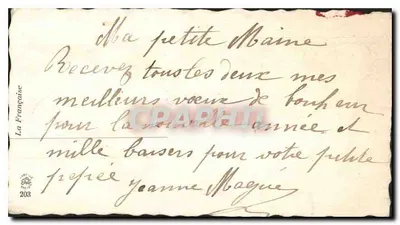 Ma petite Maine
Recevez tous les deux mes
meilleurs vœux de bonheur
pour la nouvelle année et
mille baisers pour votre petite
pepée
Jeanne Magué
La Française
203
CPARAMA